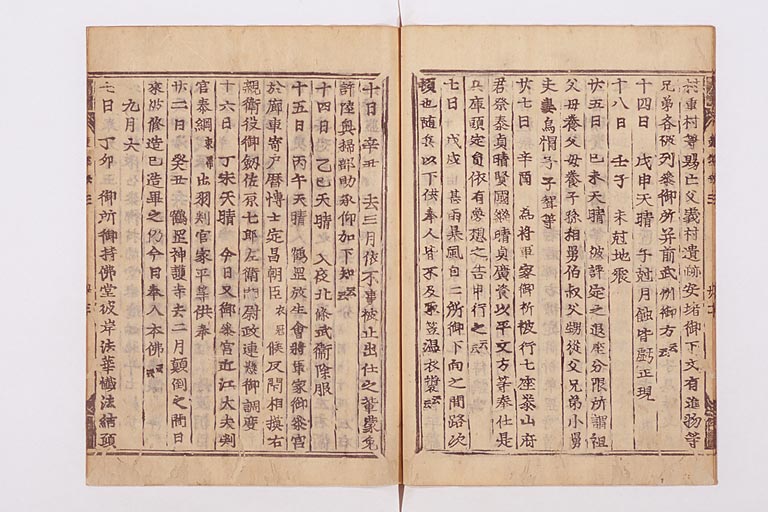 村重村等賜亡父義村遺跡安堵御下文有進物等
兄弟各破列参御所并前武州御方云云
十四日 戊申天晴 子尅月蝕皆虧正現
十八日 壬子 未尅地震
廿五日 己未天晴 被評定之退座分限所謂祖
父母養父母養子孫相舅伯叔父甥従父兄弟小舅
夫妻烏帽子子聟等
廿七日 辛酉 為将軍家御祈被行七座泰山府
君祭泰貞晴賢國継晴貞廣資以平文方等奉仕是
兵庫頭定員依有夢想之告申行之云云
七日 戊戌 甚雨暴風自二所御下向之間路次
煩也随兵以下供奉人皆不及 笠温衣裳云云
十日 辛丑 去三月依不事被止出仕之輩蒙免
許陸奥掃部助承仰加下知云云
十四日 乙巳天晴 入夜北條武衛除服
十五日 丙午天晴 鶴罡放生會将軍家御参宮
於廊東寄戸暦博士定昌朝臣衣冠候反閇相摸右
親衛役御釼佐原七郎左衛門尉政連懸御調度
十六日 丁未天晴 今日又御参宮近江大夫判
官泰綱束帯出羽判官家平等供奉
廿二日 癸丑 鶴罡神護寺去二月顛倒之間日
来 修造已造畢之仍今日奉入本佛云云
九月大
七日 丁卯 御所御持佛堂彼岸法華懺法結願